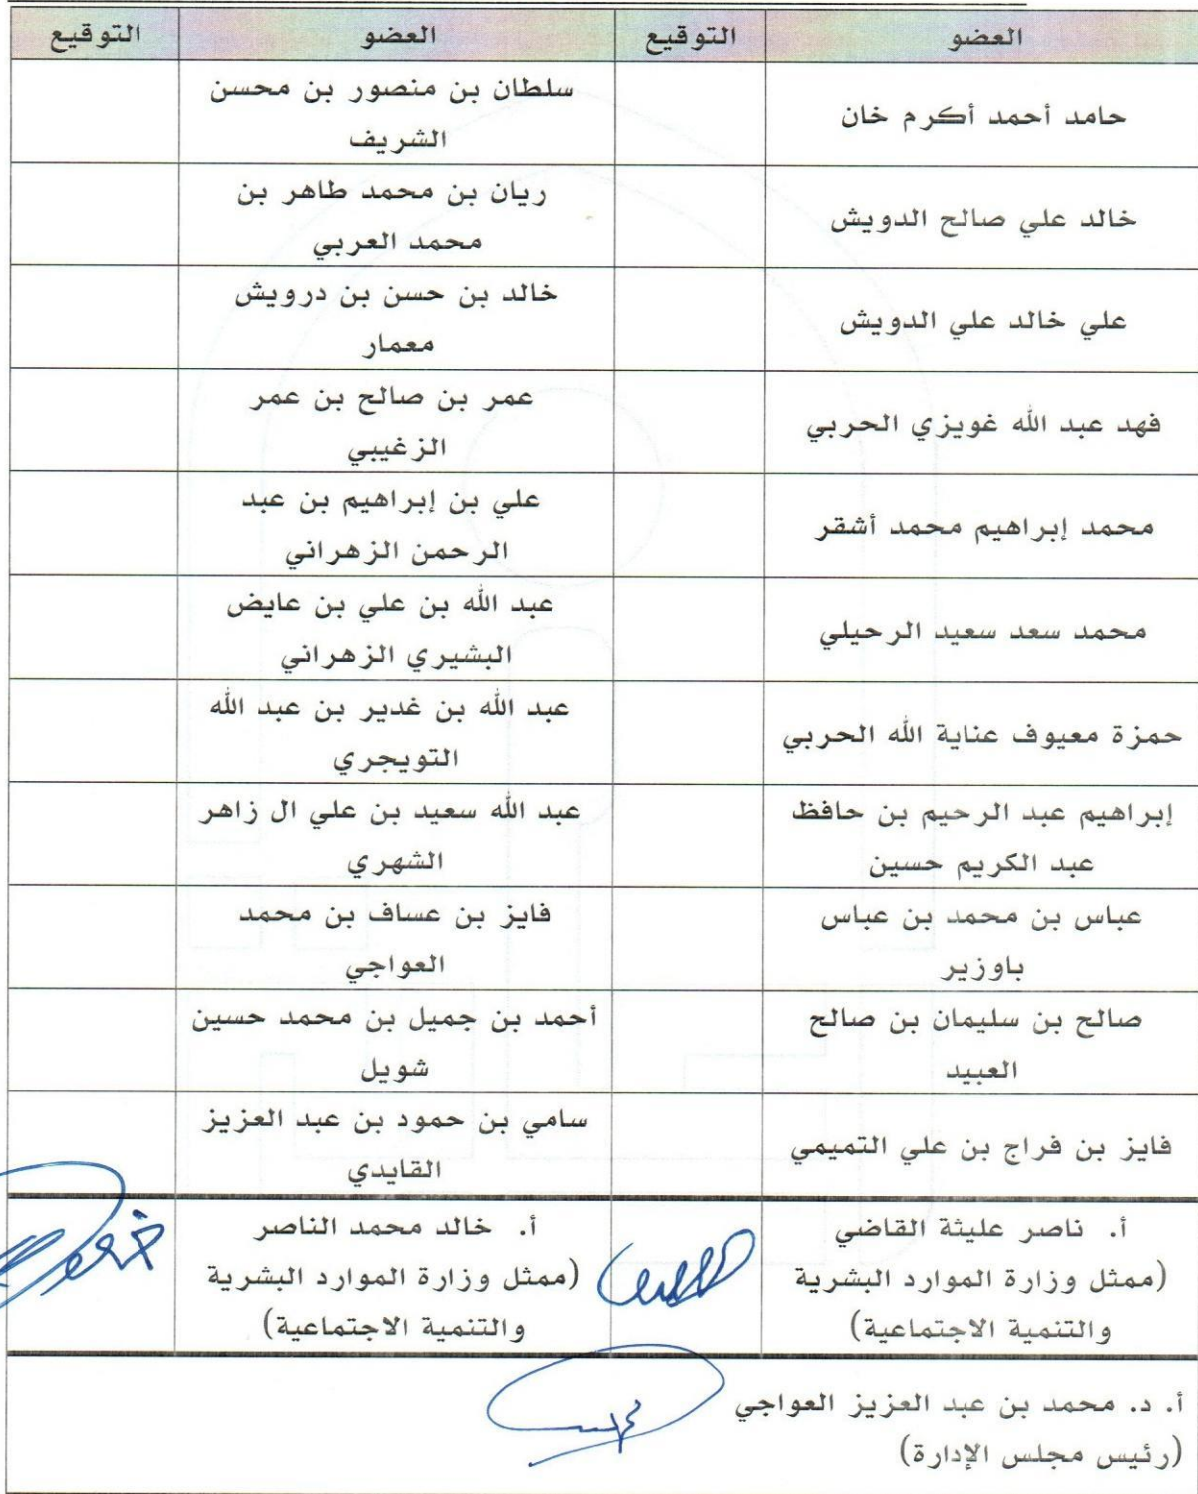 العضو التوقيع العضو التوقيع
حامد أحمد أكرم خان
سلطان بن منصور بن محسن
الشريف
خالد علي صالح الدويش
ريان بن محمد طاهر بن
محمد العربي
علي خالد علي الدويش
خالد بن حسن بن درويش
معمار
فهد عبد الله غويزي الحربي
عمر بن صالح بن عمر
الزغيبي
محمد إبراهيم محمد أشقر
علي بن إبراهيم بن عبد
الرحمن الزهراني
محمد سعد سعيد الرحيلي
عبد الله بن علي بن عايض
البشيري الزهراني
حمزة معيوف عناية الله الحربي
عبد الله بن غدير بن عبد الله
التويجري
إبراهيم عبد الرحيم بن حافظ
عبد الكريم حسين
عبد الله سعيد بن علي ال زاهر
الشهري
عباس بن محمد بن عباس
باوزير
فايز بن عساف بن محمد
العواجي
صالح بن سليمان بن صالح
العبيد
أحمد بن جميل بن محمد حسين
شويل
فايز بن فراج بن علي التميمي
سامي بن حمود بن عبد العزيز
القايدي
أ. ناصر عليثة القاضي
(ممثل وزارة الموارد البشرية
والتنمية الاجتماعية)
أ. خالد محمد الناصر
(ممثل وزارة الموارد البشرية
والتنمية الاجتماعية)
أ. د. محمد بن عبد العزيز العواجي
(رئيس مجلس الإدارة)